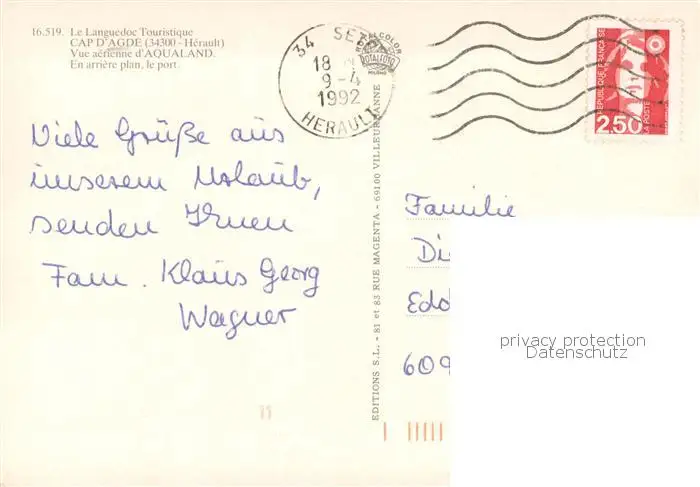 16.519. Le Languedoc Touristique
CAP D'AGDE (34300 - Hérault)
Vue aérienne d'AQUALAND.
En arrière plan, le port.
34 SETE
18
9-4
1992
HERAULT
TOTALCOLOR
TOTALFOTO
MILANO
REPUBLIQUE FRANÇAISE
2.50
LA POSTE
Viele Grüße aus
unserem Urlaub,
senden Ihnen
Fam. Klaus Georg
Wagner
EDITIONS S.L. - 81 et 83 RUE MAGENTA - 69100 VILLEURBANNE
Familie
Di
Edo
609
privacy protection
Datenschutz